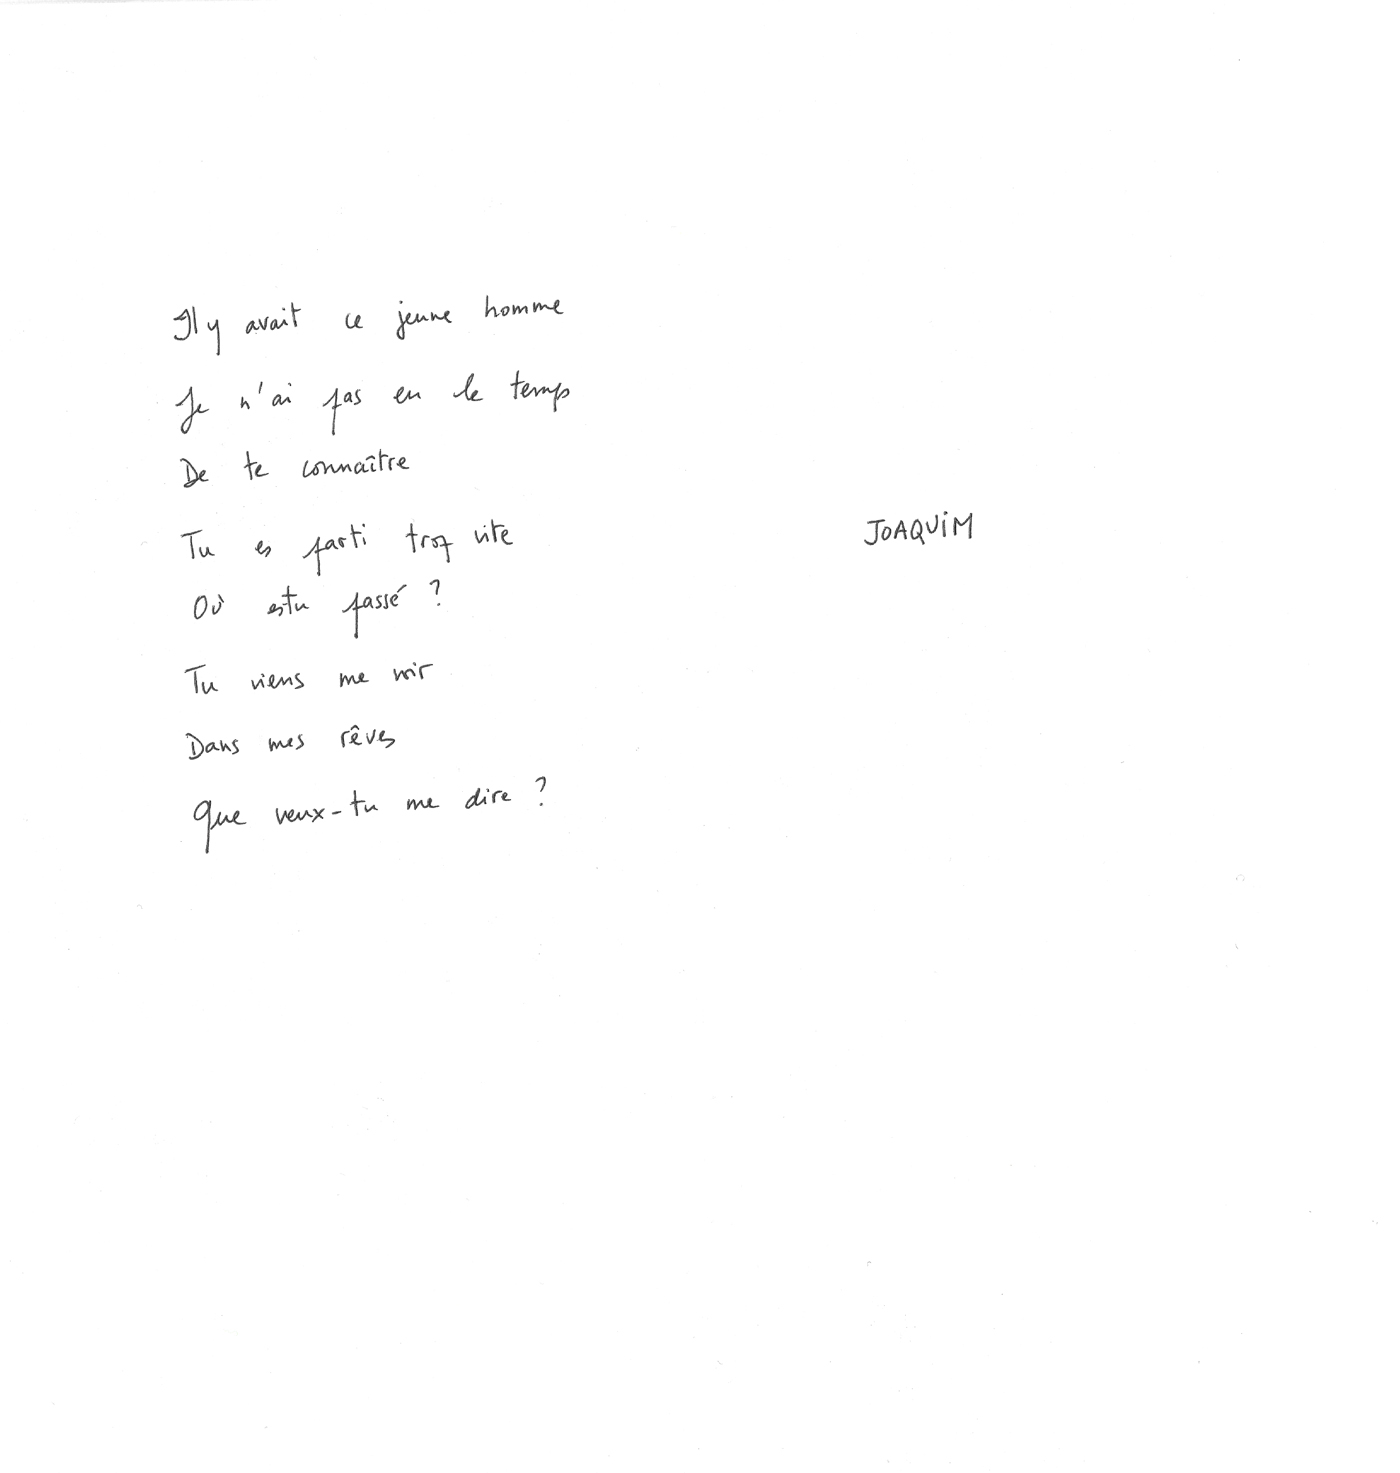 Il y avait ce jeune homme
Je n'ai pas eu le temps
De te connaître
Tu es parti trop vite
Où es tu passé ?
Tu viens me voir
Dans mes rêves
Que veux-tu me dire ?
JOAQUiM